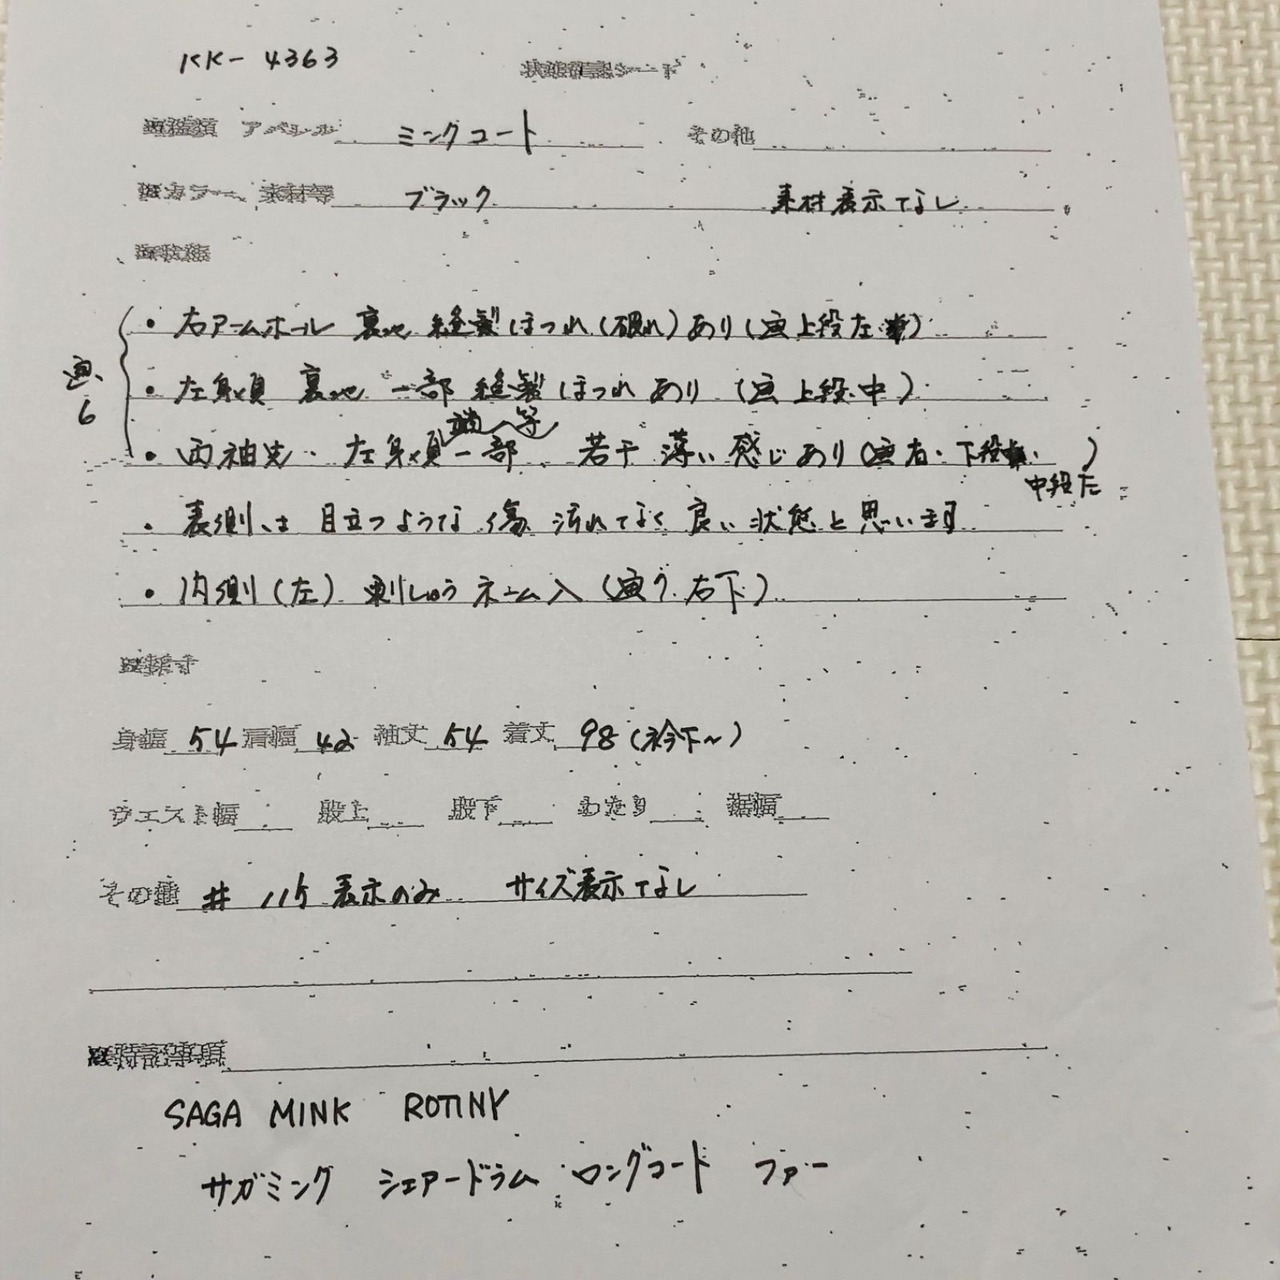 KK-4363
状態確認シート
※種類 アパレル ミンクコート その他
※カラー、素材等 ブラック 素材表示なし
※状態
・右アームホール 裏地 縫製ほつれ(破れ)あり(画上段左)
画、6
・左身頃 裏地 一部 縫製ほつれあり (画上段中)
・両袖先・左身頃一部、若干薄い感じあり(画右・下段 中段左)
・表側は目立つような傷汚れてなく良い状態と思います
・内側(左) 刺しゅうネーム入(画7.右下)
※採寸
身幅 54 肩幅 42 袖丈 54 着丈 98(衿下~)
ウエスト幅 股上 股下 わたり 裾幅
その他 # 115 表示のみ サイズ表示なし
※特記事項
SAGA MINK ROTINY
サガミンク シェアードラム ロングコート ファー